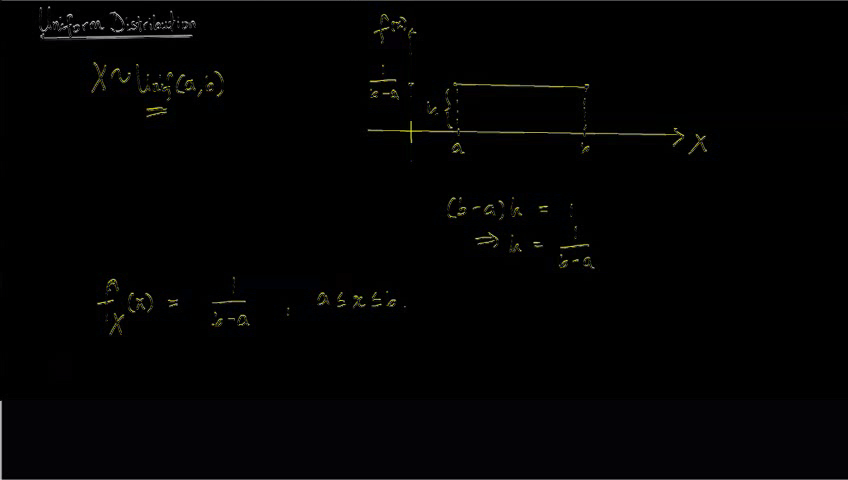 Uniform Distribution
X ~ Unif(a, b)
f(x)
1/(b-a)
k {
a b X
(b-a)k = 1
⇒ k = 1/(b-a)
f_X(x) = 1/(b-a) , a ≤ x ≤ b.